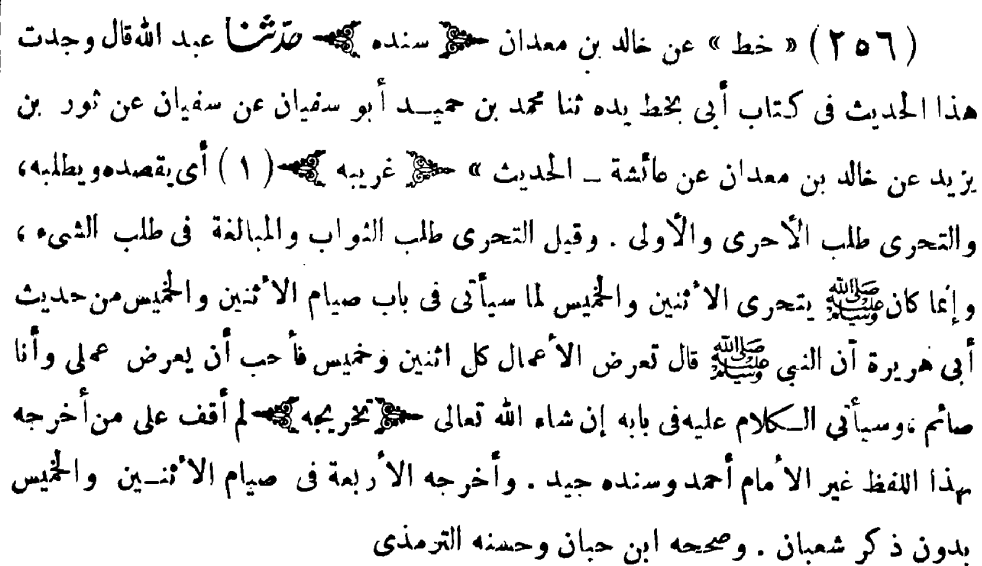 (٢٥٦) « خط » عن خالد بن معدان ﴿ سنده ﴾ حدّثنا عبد الله قال وجدت
هذا الحديث فى كتاب أبى بخط يده ثنا محمد بن حميد أبو سفيان عن سفيان عن ثور بن
يزيد عن خالد بن معدان عن عائشة ـ الحديث » ﴿ غريبه ﴾ (١) أى يقصده ويطلبه،
والتحرى طلب الأحرى والأولى . وقيل التحرى طلب الثواب والمبالغة فى طلب الشىء ،
وإنما كان ﷺ يتحرى الأثنين والخميس لما سيأتى فى باب صيام الأثنين والخميس من حديث
أبى هريرة أن النبى ﷺ قال تعرض الأعمال كل اثنين وخميس فأحب أن يعرض عملى وأنا
صائم ،وسيأتي الكلام عليه فى بابه إن شاء الله تعالى ﴿ تخريجه ﴾ لم أقف على من أخرجه
بهذا اللفظ غير الأمام أحمد وسنده جيد . وأخرجه الأربعة فى صيام الأثنين والخميس
بدون ذكر شعبان . وصححه ابن حبان وحسنه الترمذى